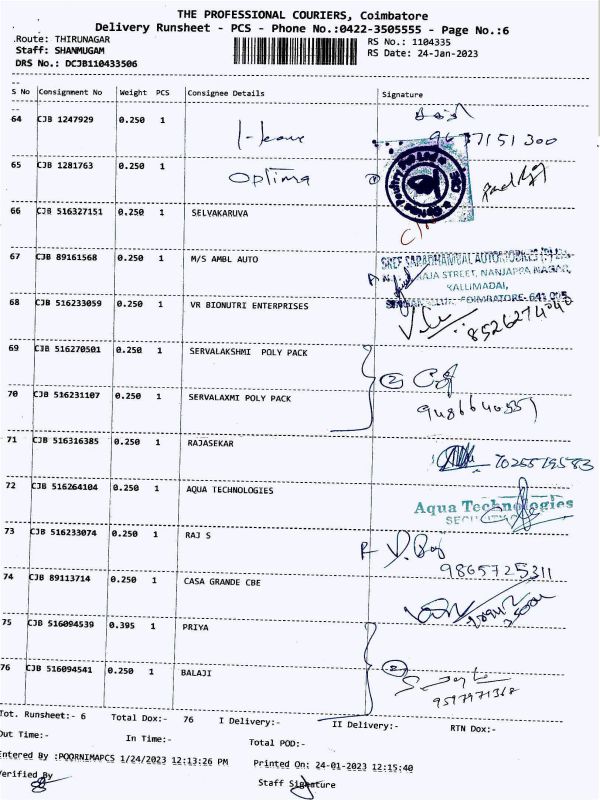 THE PROFESSIONAL COURIERS, Coimbatore
Delivery Runsheet - PCS - Phone No.:0422-3505555 - Page No.:6
Route: THIRUNAGAR
RS No.: 1104335
Staff: SHANMUGAM
RS Date: 24-Jan-2023
DRS No.: DCJB110433506
S No Consignment No Weight PCS Consignee Details Signature
64 CJB 1247929 0.250 1
65 CJB 1281763 0.250 1 Optima
66 CJB 516327151 0.250 1 SELVAKARUVA
67 CJB 89161568 0.250 1 M/S AMBL AUTO
RAJA STREET, NANJAPPA NAGAR,
KALLIMADAI,
COIMBATORE-641 005
68 CJB 516233059 0.250 1 VR BIONUTRI ENTERPRISES
8526274242
69 CJB 516270501 0.250 1 SERVALAKSHMI POLY PACK
2
70 CJB 516231107 0.250 1 SERVALAXMI POLY PACK
71 CJB 516316385 0.250 1 RAJASEKAR
7025519583
72 CJB 516264104 0.250 1 AQUA TECHNOLOGIES
Aqua Technologies
SECURITY
73 CJB 516233074 0.250 1 RAJ S
9865725311
74 CJB 89113714 0.250 1 CASA GRANDE CBE
75 CJB 516094539 0.395 1 PRIYA
2
76 CJB 516094541 0.250 1 BALAJI
9597971368
Tot. Runsheet:- 6 Total Dox:- 76 I Delivery:- II Delivery:- RTN Dox:-
Out Time:- In Time:- Total POD:-
Entered By :POORNIMAPCS 1/24/2023 12:13:26 PM Printed On: 24-01-2023 12:15:40
Verified By Staff Signature